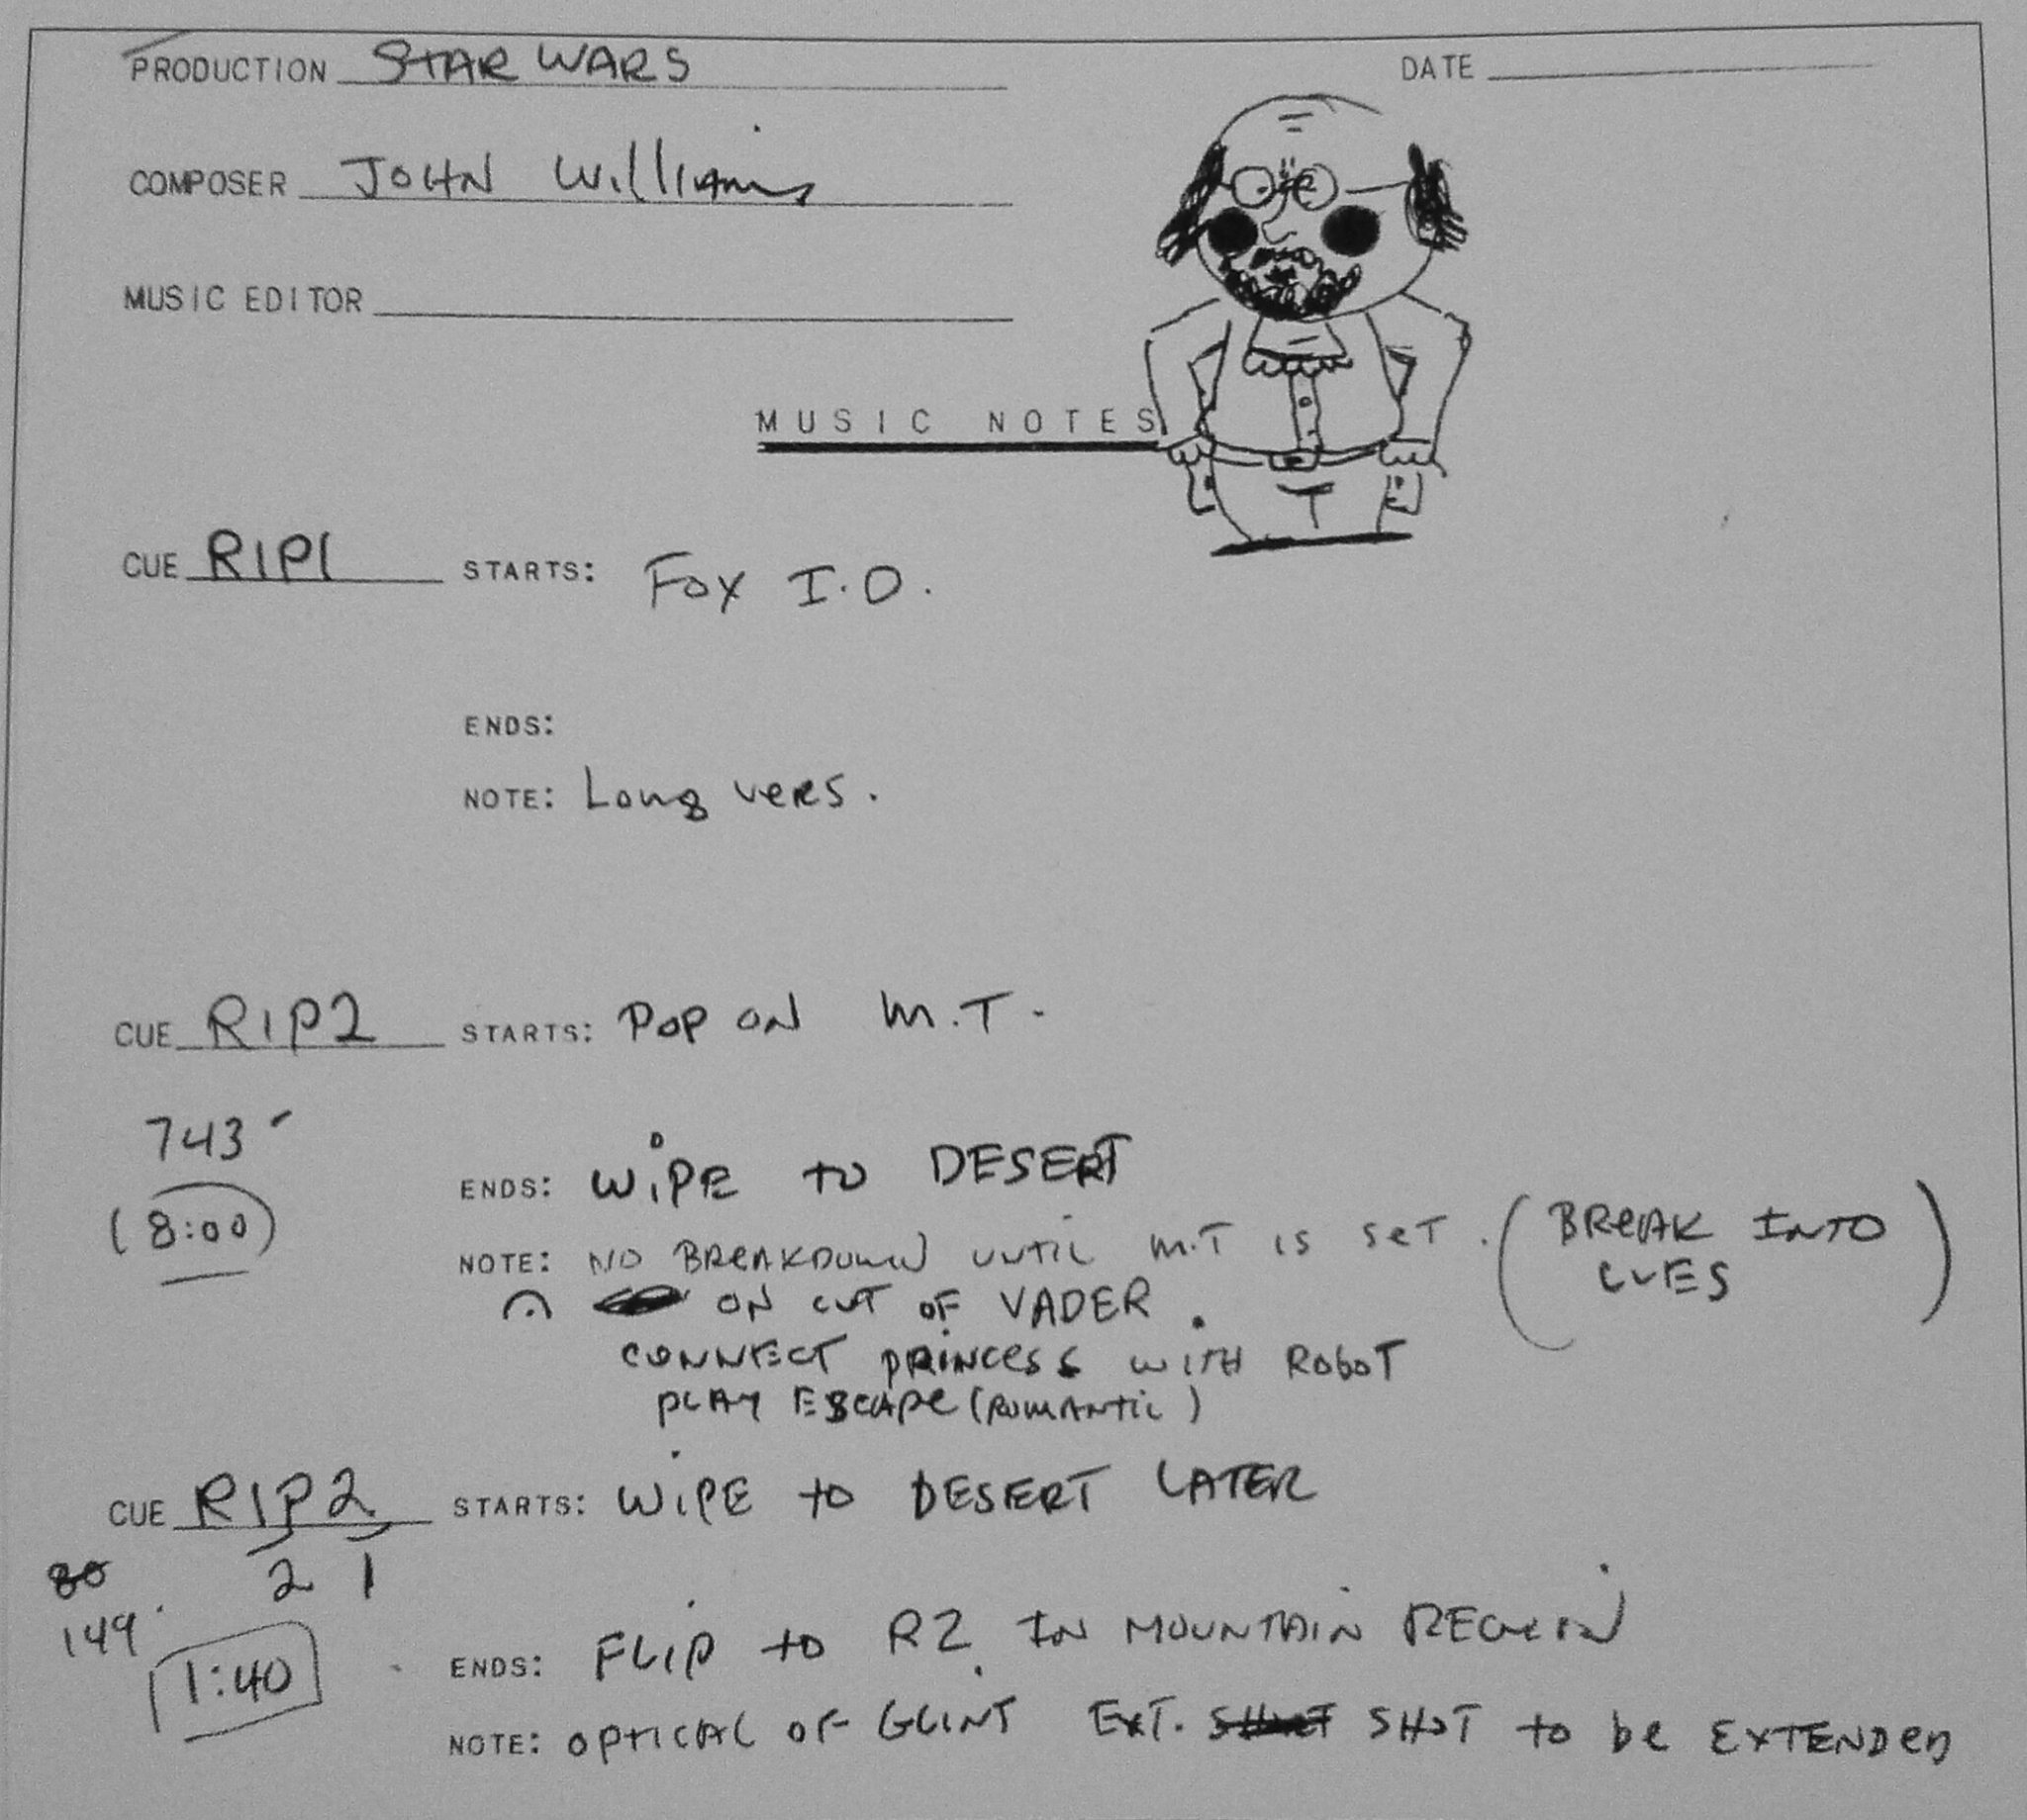 PRODUCTION STAR WARS DATE
COMPOSER JOHN Williams
MUSIC EDITOR
MUSIC NOTES
CUE R1P1 STARTS: FOX I.D.
ENDS:
NOTE: Long vers.
CUE R1P2 STARTS: POP ON M.T.
743
ENDS: WiPE to DESERT
(8:00)
NOTE: NO BREAKDOWN UNTIL M.T IS SET. (BREAK INTO
CUES)
ON CUT OF VADER.
CONNECT PRINCESS WITH ROBOT
PLAY ESCAPE (ROMANTIC)
CUE R1P2 STARTS: WiPE to DESERT LATER
80 2 1
149
1:40
ENDS: FLIP to R2 IN MOUNTAIN REGION
NOTE: OPTICAL OF GLINT EXT. SHOT to be EXTENDED